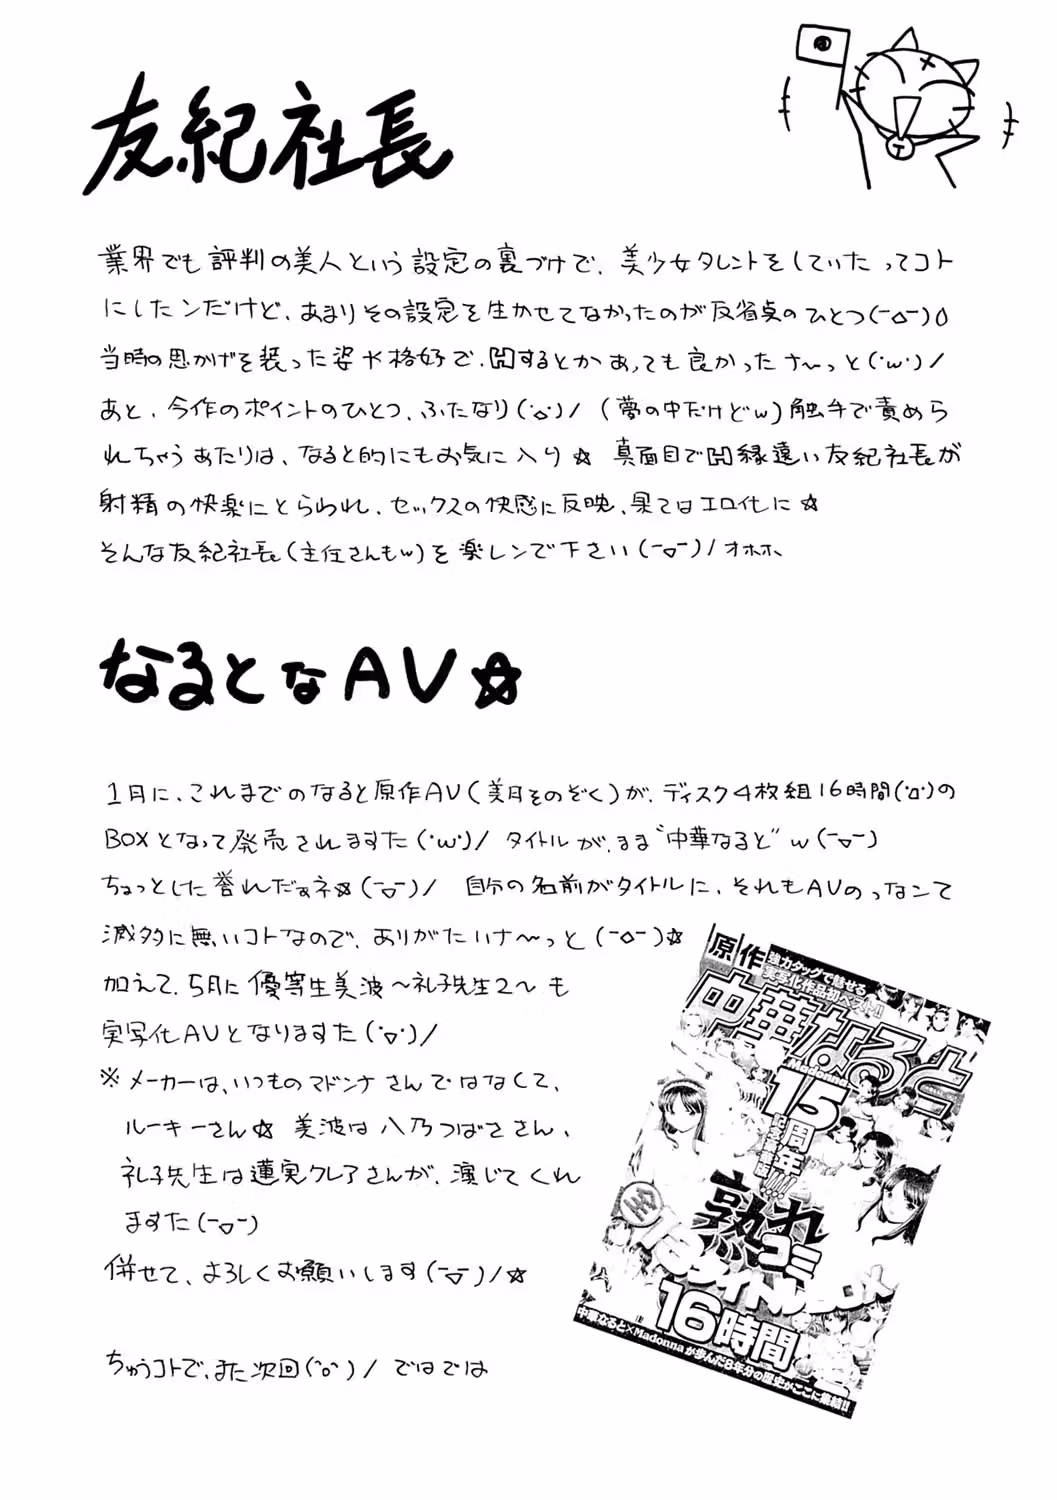 友紀社長
業界でも評判の美人という設定の裏づけで、美少女タレントをしていたってコト
にしたンだけど、あまりその設定を生かせてなかったのが反省点のひとつ(ｰ△ｰ)0
当時の思かげを装った姿や格好で、悶するとかあっても良かったナ〜っと(・ω・)/
あと、今作のポイントのひとつ、ふたなり(°△°)/ (夢の中だけどw)触手で責めら
れちゃうあたりは、なると的にもお気に入り☆ 真面目でH縁遠い友紀社長が
射精の快楽にとらわれ、セックスの快感に反映、果てはエロ化に☆
そんな友紀社長(主任さんもw)を楽レンで下さい(ｰ▽ｰ)/オホホ、
なるとなAV☆
1月に、これまでのなると原作AV(美月そのぞく)が、ディスク4枚組16時間(°д°)の
BOXとなって発売されますた(・ω・)/ タイトルが、まま"中華なると"w(ｰ▽ｰ)
ちょっとした誉れだぁネ☆(ｰ▽ｰ)/ 自分の名前がタイトルに、それもAVのっなンて
滅多に無いコトなので、ありがたいナ〜っと(ｰ◇ｰ)☆
加えて、5月に優等生美波〜礼子先生2〜も
実写化AVとなりますた(・▽・)/
※メーカーは、いつものマドンナさんではなくて、
ルーキーさん☆ 美波は八乃つばささん、
礼子先生は蓮実クレアさんが、演じてくれ
ますた(ｰ▽ｰ)
併せて、よろしくお願いします(ｰ▽ｰ)/☆
ちゅうコトで、また次回(°o°)/ ではでは
T
原作
強力タッグで魅せる
実写化作品初ベスト!!
中華なると
Madonna
15周年
記念豪華版!!!!
熟れコミ
全13タイトルBOX
16時間
中華なると×Madonnaが歩んだ8年分の歴史がここに集結!!